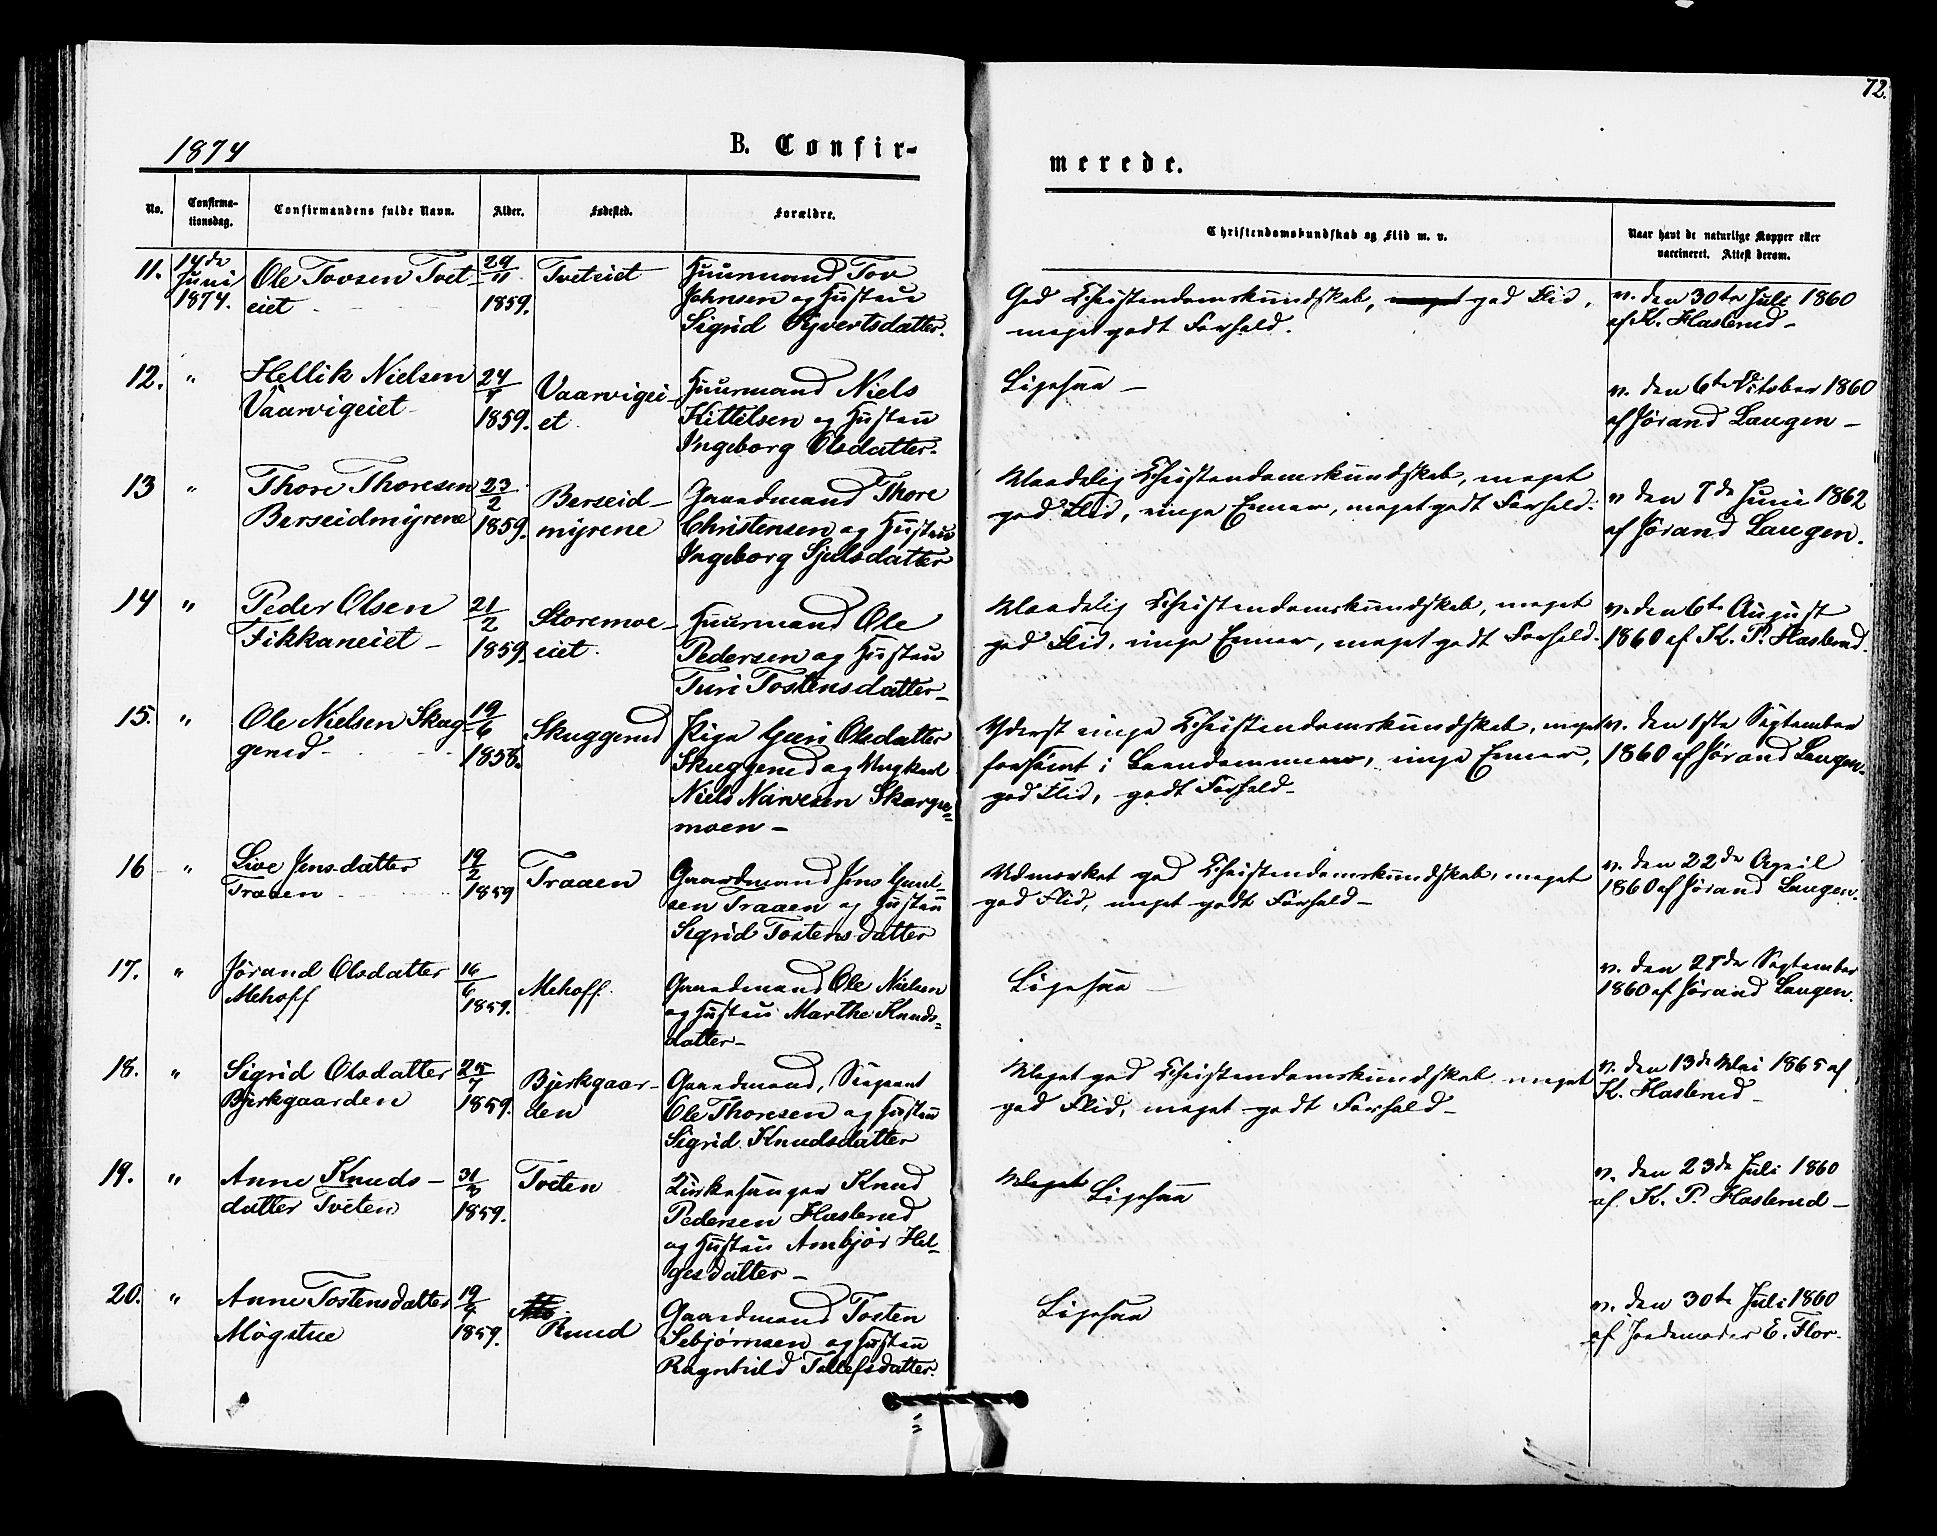 72.
1874
B. Confir-
merede.
No.
Confirma-
tionsdag.
Confirmandens fulde Navn.
Alder.
Fødested.
Forældre.
Christendomskundskab og Flid m. v.
Naar havt de naturlige Kopper eller
vaccineret. Attest derom.
11. 14de Juni 1874.
Ole Tovsen Tvet-
eiet
29/11 1859.
Tveteiet
Huusmand Tov
Johnsen og Hustru
Sigrid Gjvertsdatter.
God Christendomskundskab, god Flid,
meget godt Forhold.
v. den 30te Juli 1860
af K. Hasberud
12. "
Hellik Nielsen
Vaarvigeiet
1859.
Vaarvigei-
et
Huusmand Niels
Kittelsen og Hustru
Ingeborg Olsdatter.
Ligesaa
v. den 6te October 1860
af Jørand Laugen
13 "
Thore Thoresen
Berseidmyrene
23/2 1859.
Berseid-
myrene
Gaardmand Thore
Christensen og Hustru
Ingeborg Sjulsdatter
Maadelig Christendomskundskab, meget
god Flid, ringe Evner, meget godt Forhold.
v den 7de Juni 1862
af Jørand Laugen.
14 "
Peder Olsen
Fikkaneiet
21/2 1859.
Storemoe-
eiet.
Huusmand Ole
Pedersen og Hustru
Turi Tostensdatter
Maadelig Christendomskundskab, meget
god Flid, ringe Evner, meget godt Forhold.
v. den 6te August
1860 af K. P. Hasberud.
15. "
Ole Nielsen Skug-
gerud
19/6 1858.
Skuggerud
Pige Guri Olsdatter
Skuggerud og Ungkarl
Niels Narvesen
moen
Yderst ringe Christendomskundskab, meget
forsømt i Barndommen, ringe Evner,
god Flid, godt Forhold
v. den 1ste September
1860 af Jørand Laugen.
16 "
Live Jensdatter
Traaen
19/2 1859
Traaen
Gaardmand Jens
sen Traaen og Hustru
Sigrid Tostensdatter
Udmærket god Christendomskundskab, meget
god Flid, meget godt Forhold
v. den 22de April
1860 af Jørand Laugen.
17. "
Jørand Olsdatter
Mehoff
16/6 1859.
Mehoff.
Gaardmand Ole Nielsen
og Hustru Marthe Knuds-
datter
Ligesaa
v. den 27de September
1860 af Jørand Laugen.
18. "
Sigrid Olsdatter
Bjerkgaarden
25/7 1859.
Bjerkgaar-
den
Gaardmand, Sergeant
Ole Thoresen og Hustru
Sigrid Knudsdatter
Meget god Christendomskundskab meget
god Flid, meget godt Forhold
v. den 13de Mai 1865 af
K. Hasberud
19. "
Anne Knuds-
datter Tveten
31/3 1859.
Tveten
Kirkesanger Knud
Pedersen Hasberud
og Hustru Ambjør Hel-
gesdatter
Meget Ligesaa
v. den 23de Juli 1860
af K. P. Hasberud
20. "
Anne Tostensdatter
Møgstue
1859.
Ruud
Gaardmand Tosten
Sebjørnsen og Hustru
Ragnhild Tollefsdatter.
Ligesaa
v. den 30te Juli 1860
af Jordemoder E. Flor